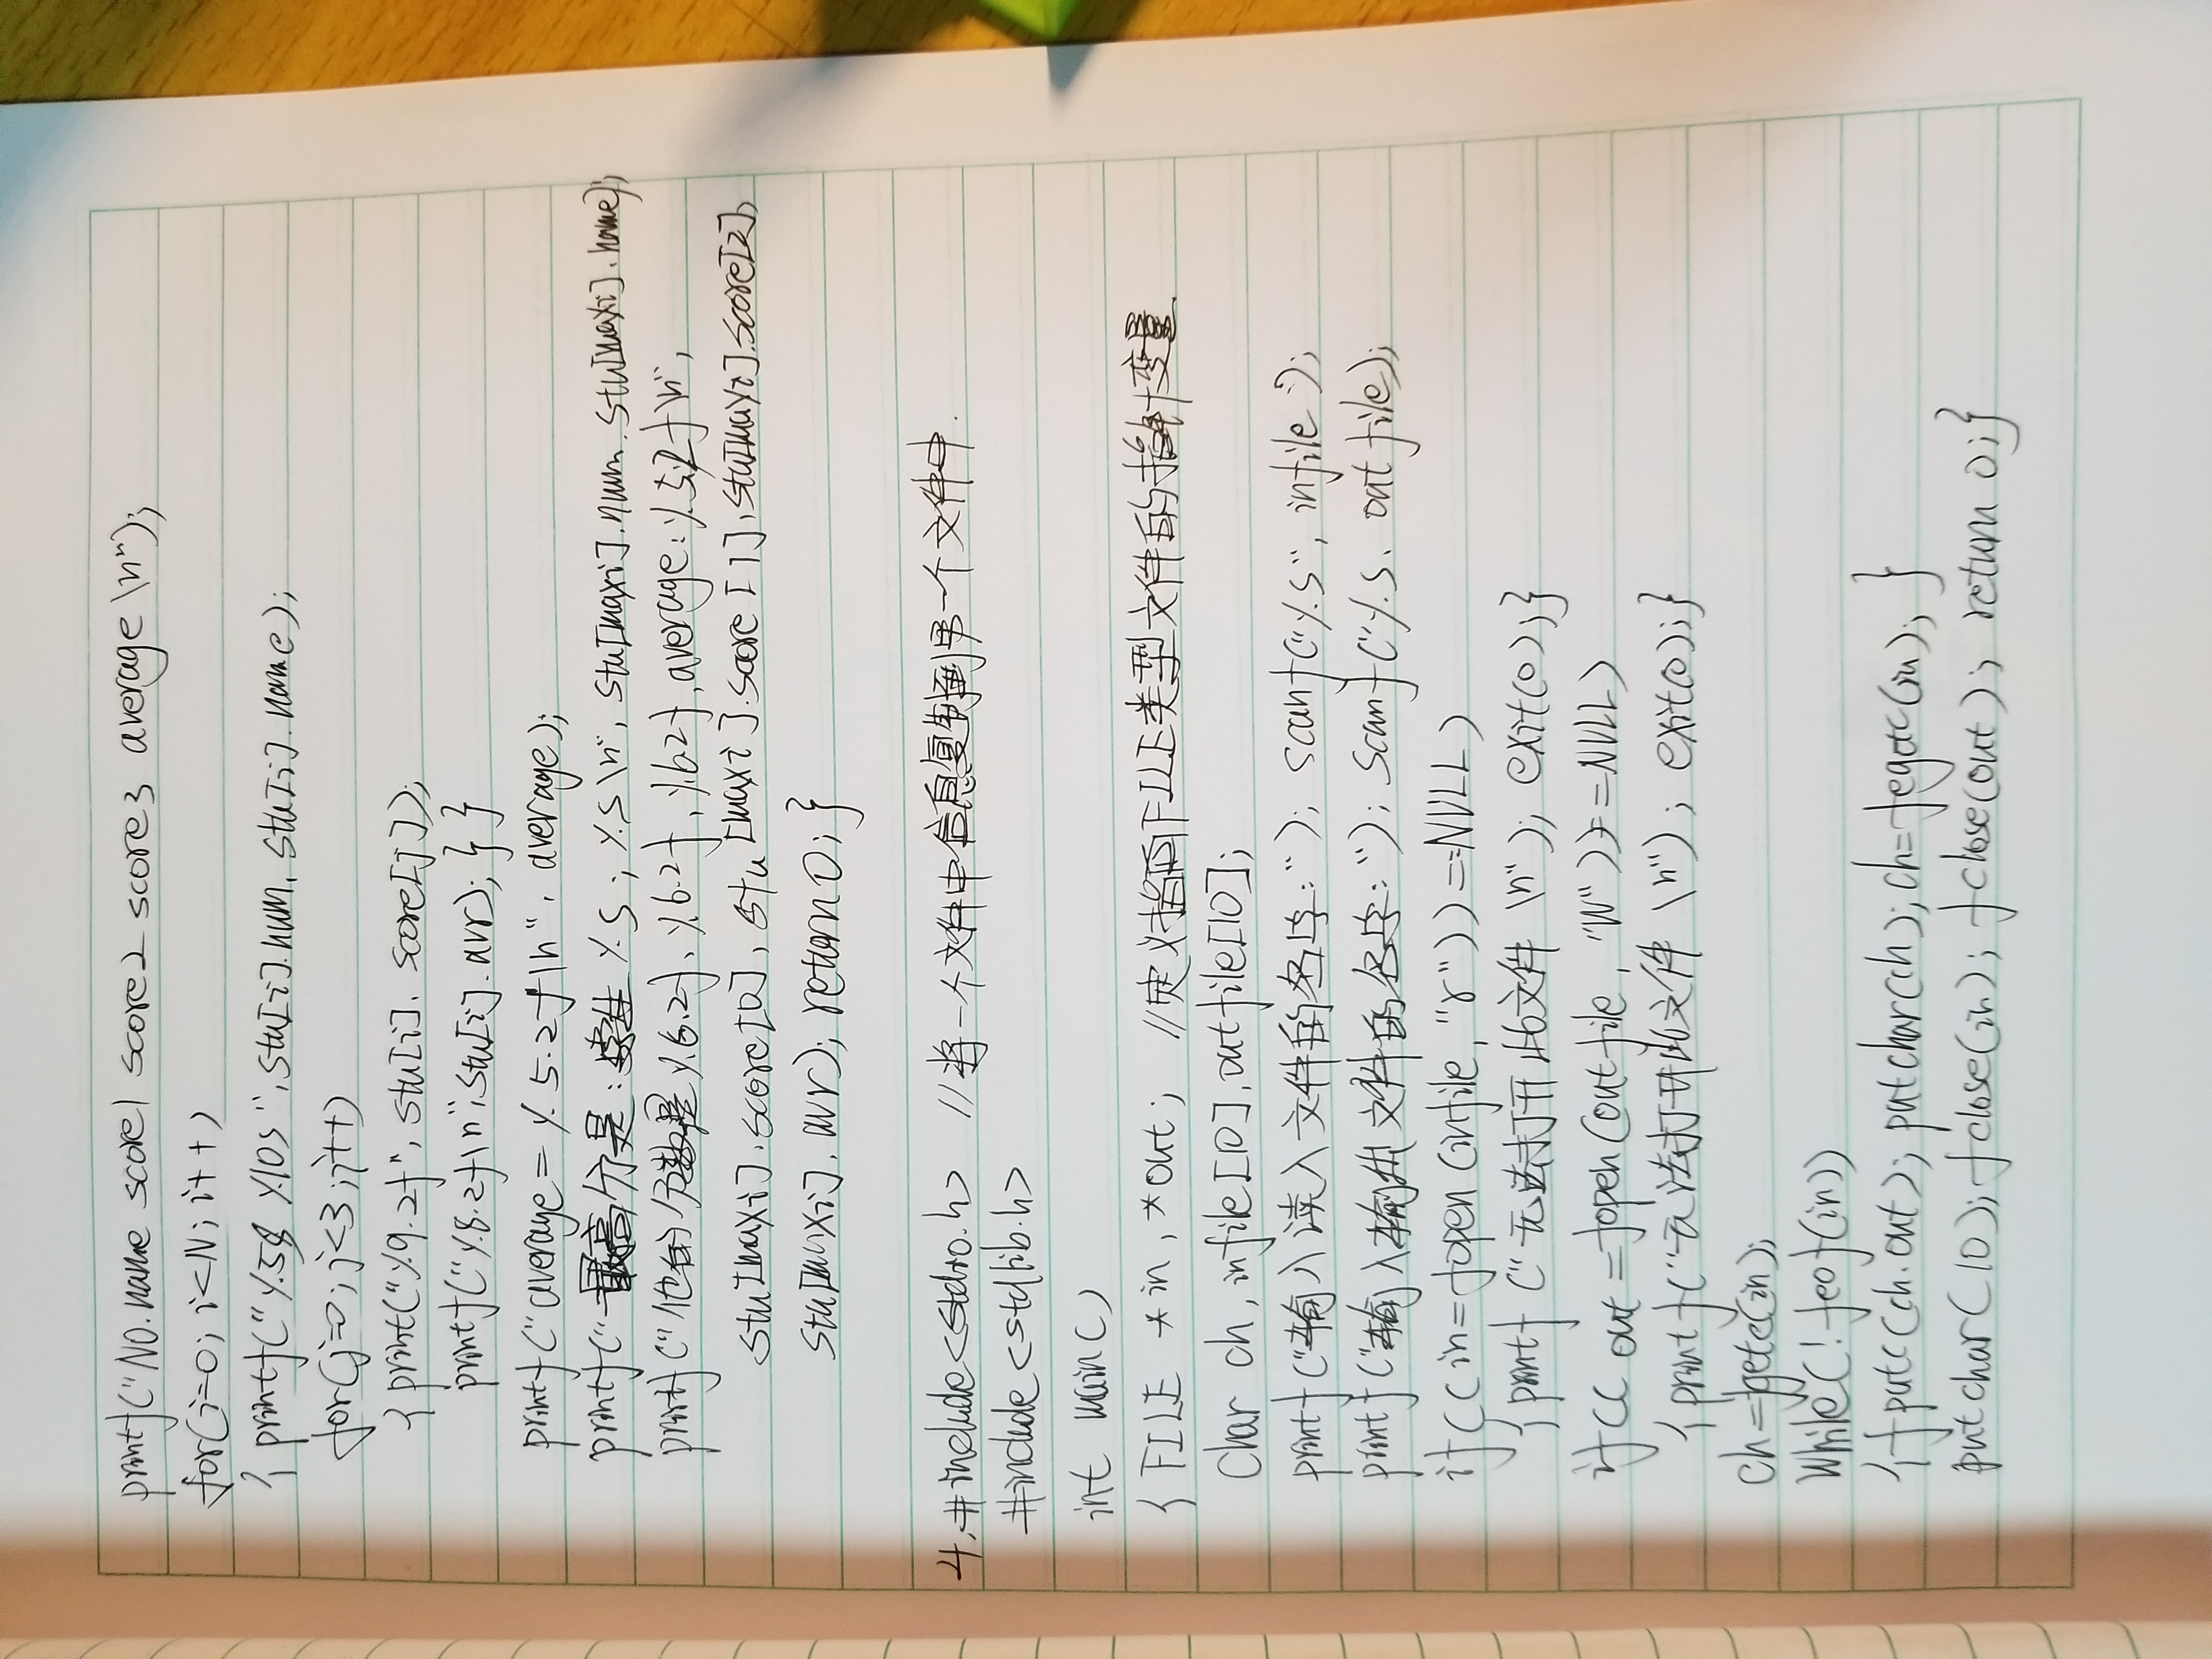 printf("NO.name score1 score2 score3 average\n");
for(i=0; i<N; i++)
{ printf("%5s %10s", stu[i].num, stu[i].name);
for(j=0; j<3; j++)
{ print("%9.2f", stu[i].score[j]);
printf("%8.2f\n", stu[i].avr); } }
printf("average = %5.2f\n", average);
printf("最高分是:学生 %s; %s\n", stu[maxi].num, stu[maxi].name);
printf("他的分数是 %6.2f, %6.2f, %6.2f, average: %5.2f\n",
stu[maxi].score[0], stu[maxi].score[1], stu[maxi].score[2],
stu[maxi].avr); return 0; }
4. #include<stdio.h> //将一个文件中信息复制到另一个文件中.
#include<stdlib.h>
int main()
{ FILE *in, *out; //定义指向FILE类型文件的指针变量
Char ch, infile[10], outfile[10];
printf("输入读入文件的名字:"); scanf("%s", infile);
printf("输入输出文件的名字:"); scanf("%s, outfile);
if((in=fopen(infile, "r"))==NULL)
{ printf("无法打开此文件\n"); exit(0); }
if((out=fopen(outfile, "w"))==NULL)
{ printf("无法打开此文件\n"); exit(0); }
ch=fgetc(in);
While(!feof(in))
{ fputc(ch.out); putchar(ch); ch=fegetc(in); }
putchar(10); fclose(in); fclose(out); return 0; }